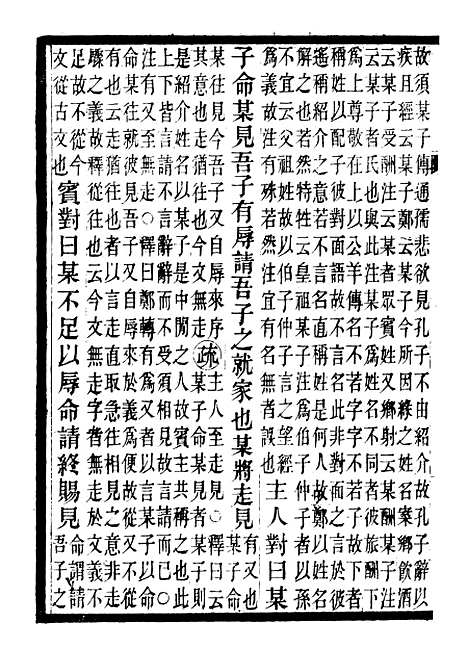 故須某子傳通孺悲欲見孔子不由紹介故孔子辭以
疾且經云某子鄭云某子今所因緣之姓名案鄉飲酒
云某子受酬注云某者衆賓姓又鄉射云某酬某子注
云某子者氏也與此注某子爲姓名不同者彼旅酬下
爲上尊敬在上以公羊傳名不若字字不若子故下者
稱姓以配子彼對面語故不言名此非對面之言於彼
遙稱紹介之意若不言名直稱姓是何人故鄭以姓名
解之若然特牲云皇祖某子注爲伯子仲子者以孫
不宜云父祖姓故以伯子仲子言之望經
爲義故注有殊若然注宜有名無者誤也主人對曰某
子命某見吾子有辱請吾子之就家也某將走見有又也
某子命
某往見今吾子又自辱來序
其意也走猶往也今文無走疏主人至走見○釋曰云
某子命某見者某子則
是紹介姓名以某子是中閒之人故賓主共稱之也此
上下皆言請不言辭辭而不受須相見故言請而已○
注有又至無走○釋曰鄭轉有爲又者以言某子以命
命某往就彼見吾子又自辱來於義爲便故從又不從
有也云走猶往也者以言走直取急往相見之意非走
驟之義故釋從往也云今文無走字者無走於文義不
足故不從今
文從古文也賓對曰某不足以辱命請終賜見命謂請
吾子之